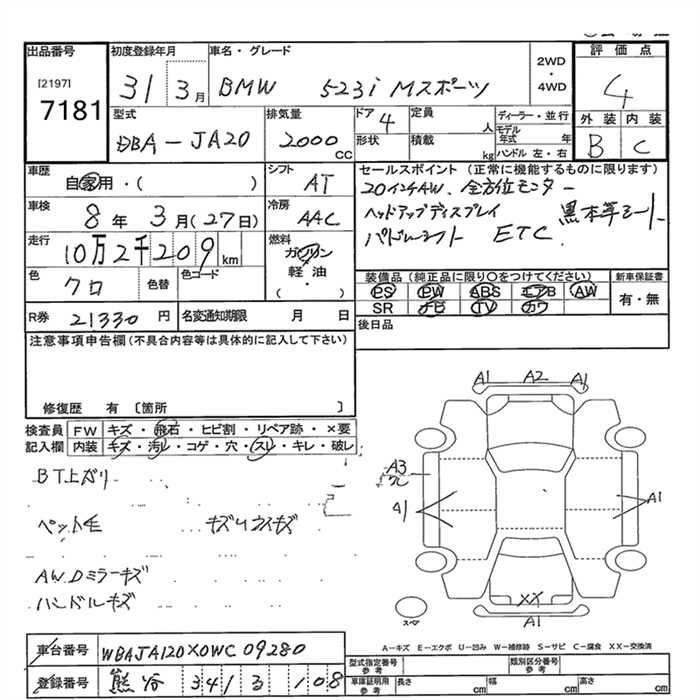 出品番号
[2197]
7181
初度登録年月
31 3月
車名・グレード
BMW 523i Mスポーツ
2WD
・
4WD
評価点
4
外装 内装
B C
型式
DBA-JA20
排気量
2000
CC
ドア
4
形状
定員
人
積載
kg
ディーラー・並行
モデル
年式
年
ハンドル 左・右
車歴
自家用・( )
シフト
AT
車検
8年 3月(27日)
冷房
AAC
走行
10万2千209
km
燃料
ガソリン
軽・油
( )
色
クロ
色替
色コード
R券 21330 円
名変通知期限 月 日
セールスポイント (正常に機能するものに限ります)
20インチAW、全方位モニター
ヘッドアップディスプレイ 黒本革シート
パドルシフト ETC
装備品(純正品に限り○をつけてください)
PS PW ABS エアB AW
SR ナビ TV カワ
新車保証書
有・無
後日品
注意事項申告欄(不具合内容等は具体的に記入して下さい)
修復歴 有 〔箇所 〕
検査員
記入欄
FW キズ・飛石・ヒビ割・リペア跡・×要
内装 キズ・汚レ・コゲ・穴・スレ・キレ・破レ
BT上がり
ペット毛
AW、Dミラーキズ
ハンドルキズ
A1 A2 A1
A3
A1
A1
XX
A1
スペア
A-キズ E-エクボ U-凹み W-補修跡 S-サビ C-腐食 XX-交換済
車台番号
WBAJA120X0WC09280
登録番号
熊谷 341 3 108
型式指定番号
参考
類別区分番号
参考
車庫証明用
参考
長さ cm
幅 cm
高さ cm